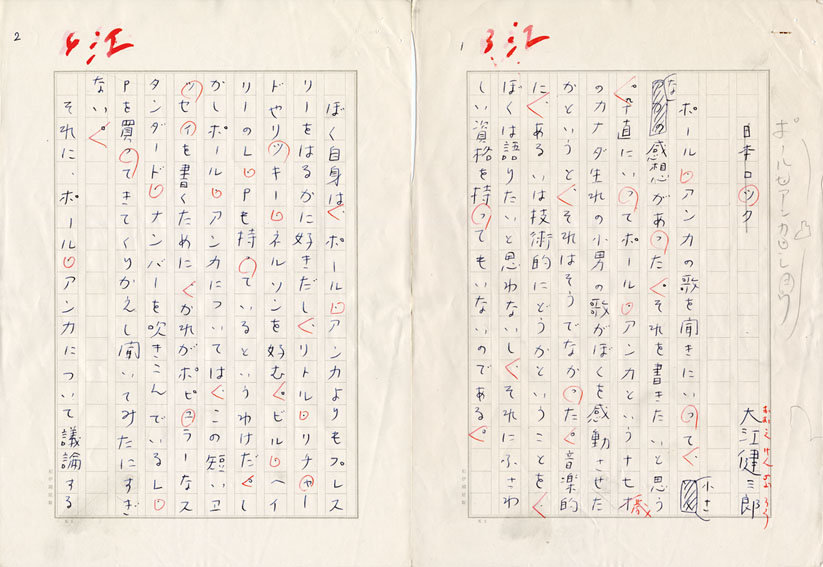 1
3 江
日本ロック
大江健三郎
おおえけんざぶろう
ポール・アンカの歌を聞きにいって、小さ
な感想があった。それを書きたいと思う
。率直にいってポール・アンカという十七歳
のカナダ生れの小男の歌がぼくを感動させた
かというと、それはそうでなかった。音楽的
に、あるいは技術的にどうかということを、
ぼくは語りたいと思わないし、それにふさわ
しい資格を持ってもいないのである。
2
4 江
ぼく自身は、ポール・アンカよりもプレス
リーをはるかに好きだし、リトル・リチャー
ドやリッキー・ネルソンを好む。ビル・ヘイ
リーのL・Pも持っているというわけだ。し
かしポール・アンカについては、この短いエ
ッセイを書くために、かれがポピュラーなス
タンダード・ナンバーを吹きこんでいるL・
Pを買ってきてくりかえし聞いてみたにすぎ
ない。
それに、ポール・アンカについて議論する